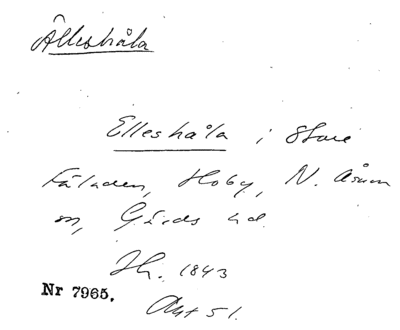 Älleshåla
Elleshåla i Stora
Fäladen, Hoby, N. Åsum
sn, Gärds hd.
Jh. 1843
Nr 7965.
Akt 51.